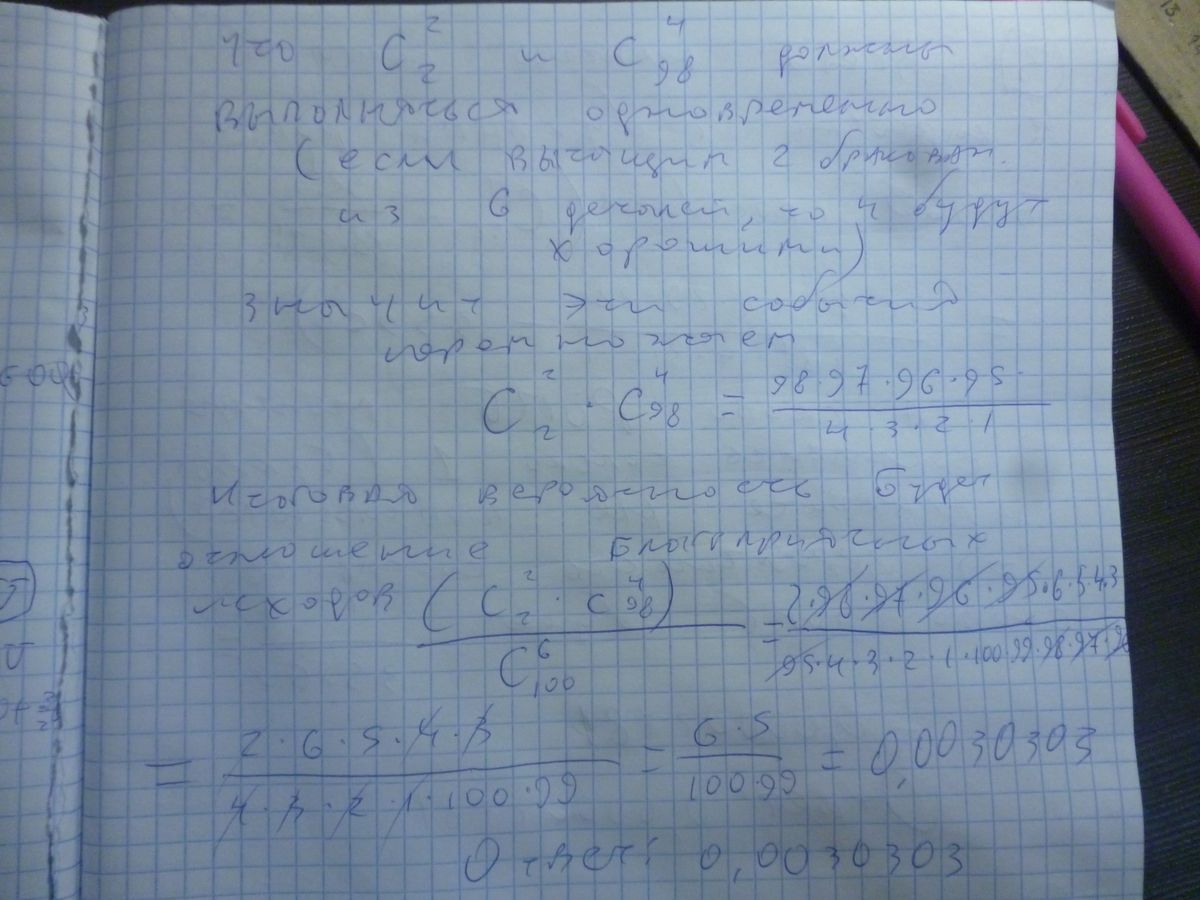 что C₂² и C₉₈⁴ должны
выполняться одновременно
(если вытащили 2 бракован.
из 6 деталей, то 4 будут
хорошими)
значит эти события
перемножаем
C₂² · C₉₈⁴ = 98·97·96·95· / 4·3·2·1
Итоговая вероятность будет
отношение благоприятных
исходов (C₂² · C₉₈⁴) / C₁₀₀⁶ = 2·98·97·96·95·6·5·4·3 / 95·4·3·2·1·100·99·98·97·96
= 2·6·5·4·3 / 4·3·2·1·100·99 = 6·5 / 100·99 = 0,0030303
Ответ: 0,0030303